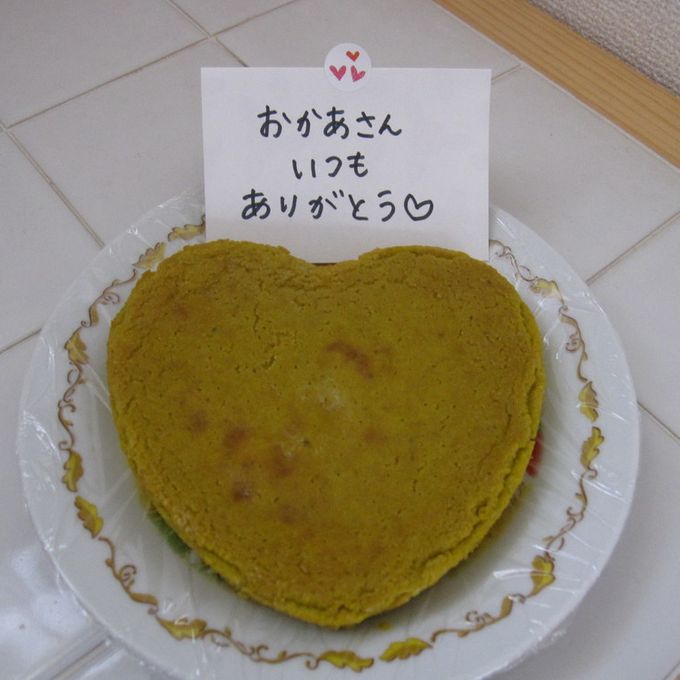 おかあさん
いつも
ありがとう♡